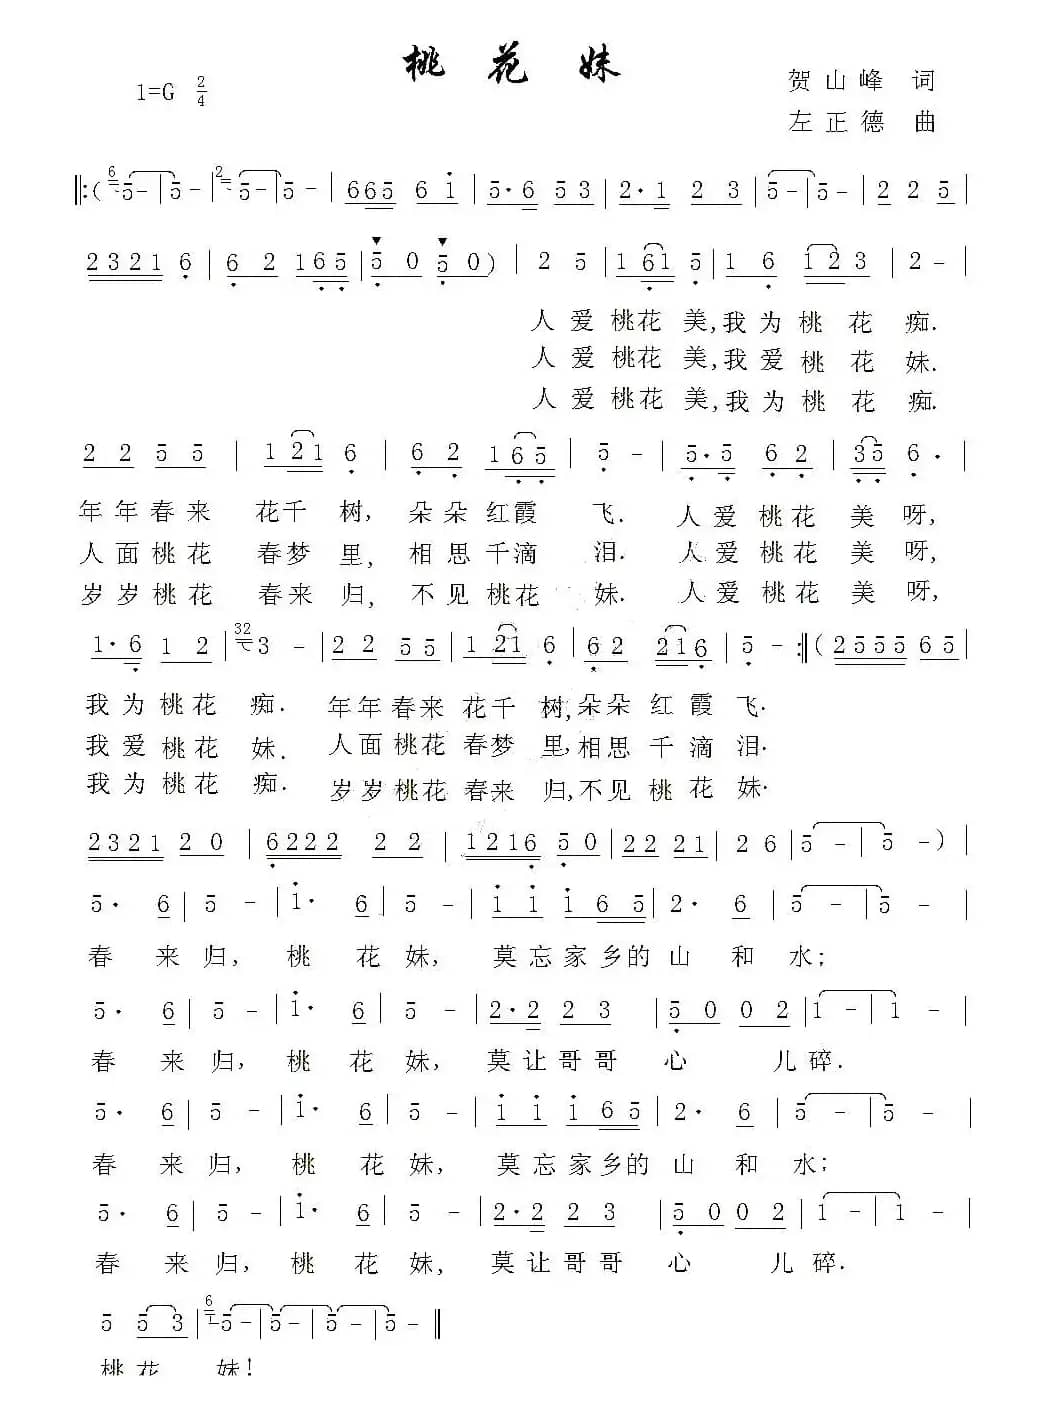 桃花妹
1=G 2/4
贺山峰 词
左正德 曲
‖:( 6 5 - | 5 - | 2 5 - | 5 - | 6 6 5 6 1 | 5· 6 5 3 | 2· 1 2 3 | 5 - | 5 - | 2 2 5 |
2 3 2 1 6 | 6 2 1 6 5 | 5 0 5 0 ) | 2 5 | 1 6 1 5 | 1 6 1 2 3 | 2 - |
人爱桃花 美,我为桃 花 痴.
人爱桃花 美,我爱桃 花 妹.
人爱桃花 美,我为桃 花 痴.
2 2 5 5 | 1 2 1 6 | 6 2 1 6 5 | 5 - | 5· 5 6 2 | 3 5 6· |
年年春来 花千 树, 朵朵红霞 飞. 人爱桃花 美呀,
人面桃花 春梦 里, 相思千滴 泪. 人爱桃花 美呀,
岁岁桃花 春来 归, 不见桃花 妹. 人爱桃花 美呀,
1· 6 1 2 | 32 3 - | 2 2 5 5 | 1 2 1 6 | 6 2 2 1 6 | 5 - :‖ ( 2 5 5 5 6 5 |
我为桃花 痴. 年年春来 花千 树,朵朵 红霞飞.
我爱桃花 妹. 人面桃花 春梦 里,相思 千滴泪.
我为桃花 痴. 岁岁桃花 春来 归,不见 桃花妹.
2 3 2 1 2 0 | 6 2 2 2 2 2 | 1 2 1 6 5 0 | 2 2 2 1 | 2 6 | 5 - | 5 - ) |
5· 6 | 5 - | 1· 6 | 5 - | 1 1 1 6 5 | 2· 6 | 5 - | 5 - |
春 来归, 桃 花妹, 莫忘家乡的山 和水;
5· 6 | 5 - | 1· 6 | 5 - | 2· 2 2 3 | 5 0 0 2 | 1 - | 1 - |
春 来归, 桃 花妹, 莫让哥哥 心 儿碎.
5· 6 | 5 - | 1· 6 | 5 - | 1 1 1 6 5 | 2· 6 | 5 - | 5 - |
春 来归, 桃 花妹, 莫忘家乡的山 和水;
5· 6 | 5 - | 1· 6 | 5 - | 2· 2 2 3 | 5 0 0 2 | 1 - | 1 - |
春 来归, 桃 花妹, 莫让哥哥 心 儿碎.
5 5 3 | 6 5 - | 5 - | 5 - | 5 - ‖
桃花 妹!